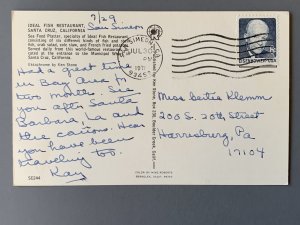 IDEAL FISH RESTAURANT,
SANTA CRUZ, CALIFORNIA
Sea Food Platter, specialty of Ideal Fish Restaurant,
consisting of six different kinds of fish and shell
fish, crab salad, cole slaw, and French fried potatoes.
Served daily from this world-famous restaurant
located at the entrance to the Municipal
Santa Cruz, California.
Ektachrome by Ken Stone
7/29
San Simeon
Had a great time
in Bay Area for
two months. See
you after Santa
Barbara, La and
the cactus. Hear
you have been
traveling too.
Kay
SE244
SAN SIMEON
JUL 30
PM
1971
93452
EISENHOWER·USA
Miss Bertie Klemm
200 S. 20th Street
Harrisburg, Pa
17104
COLOR BY MIKE ROBERTS
BERKELEY, CALIF. 94710